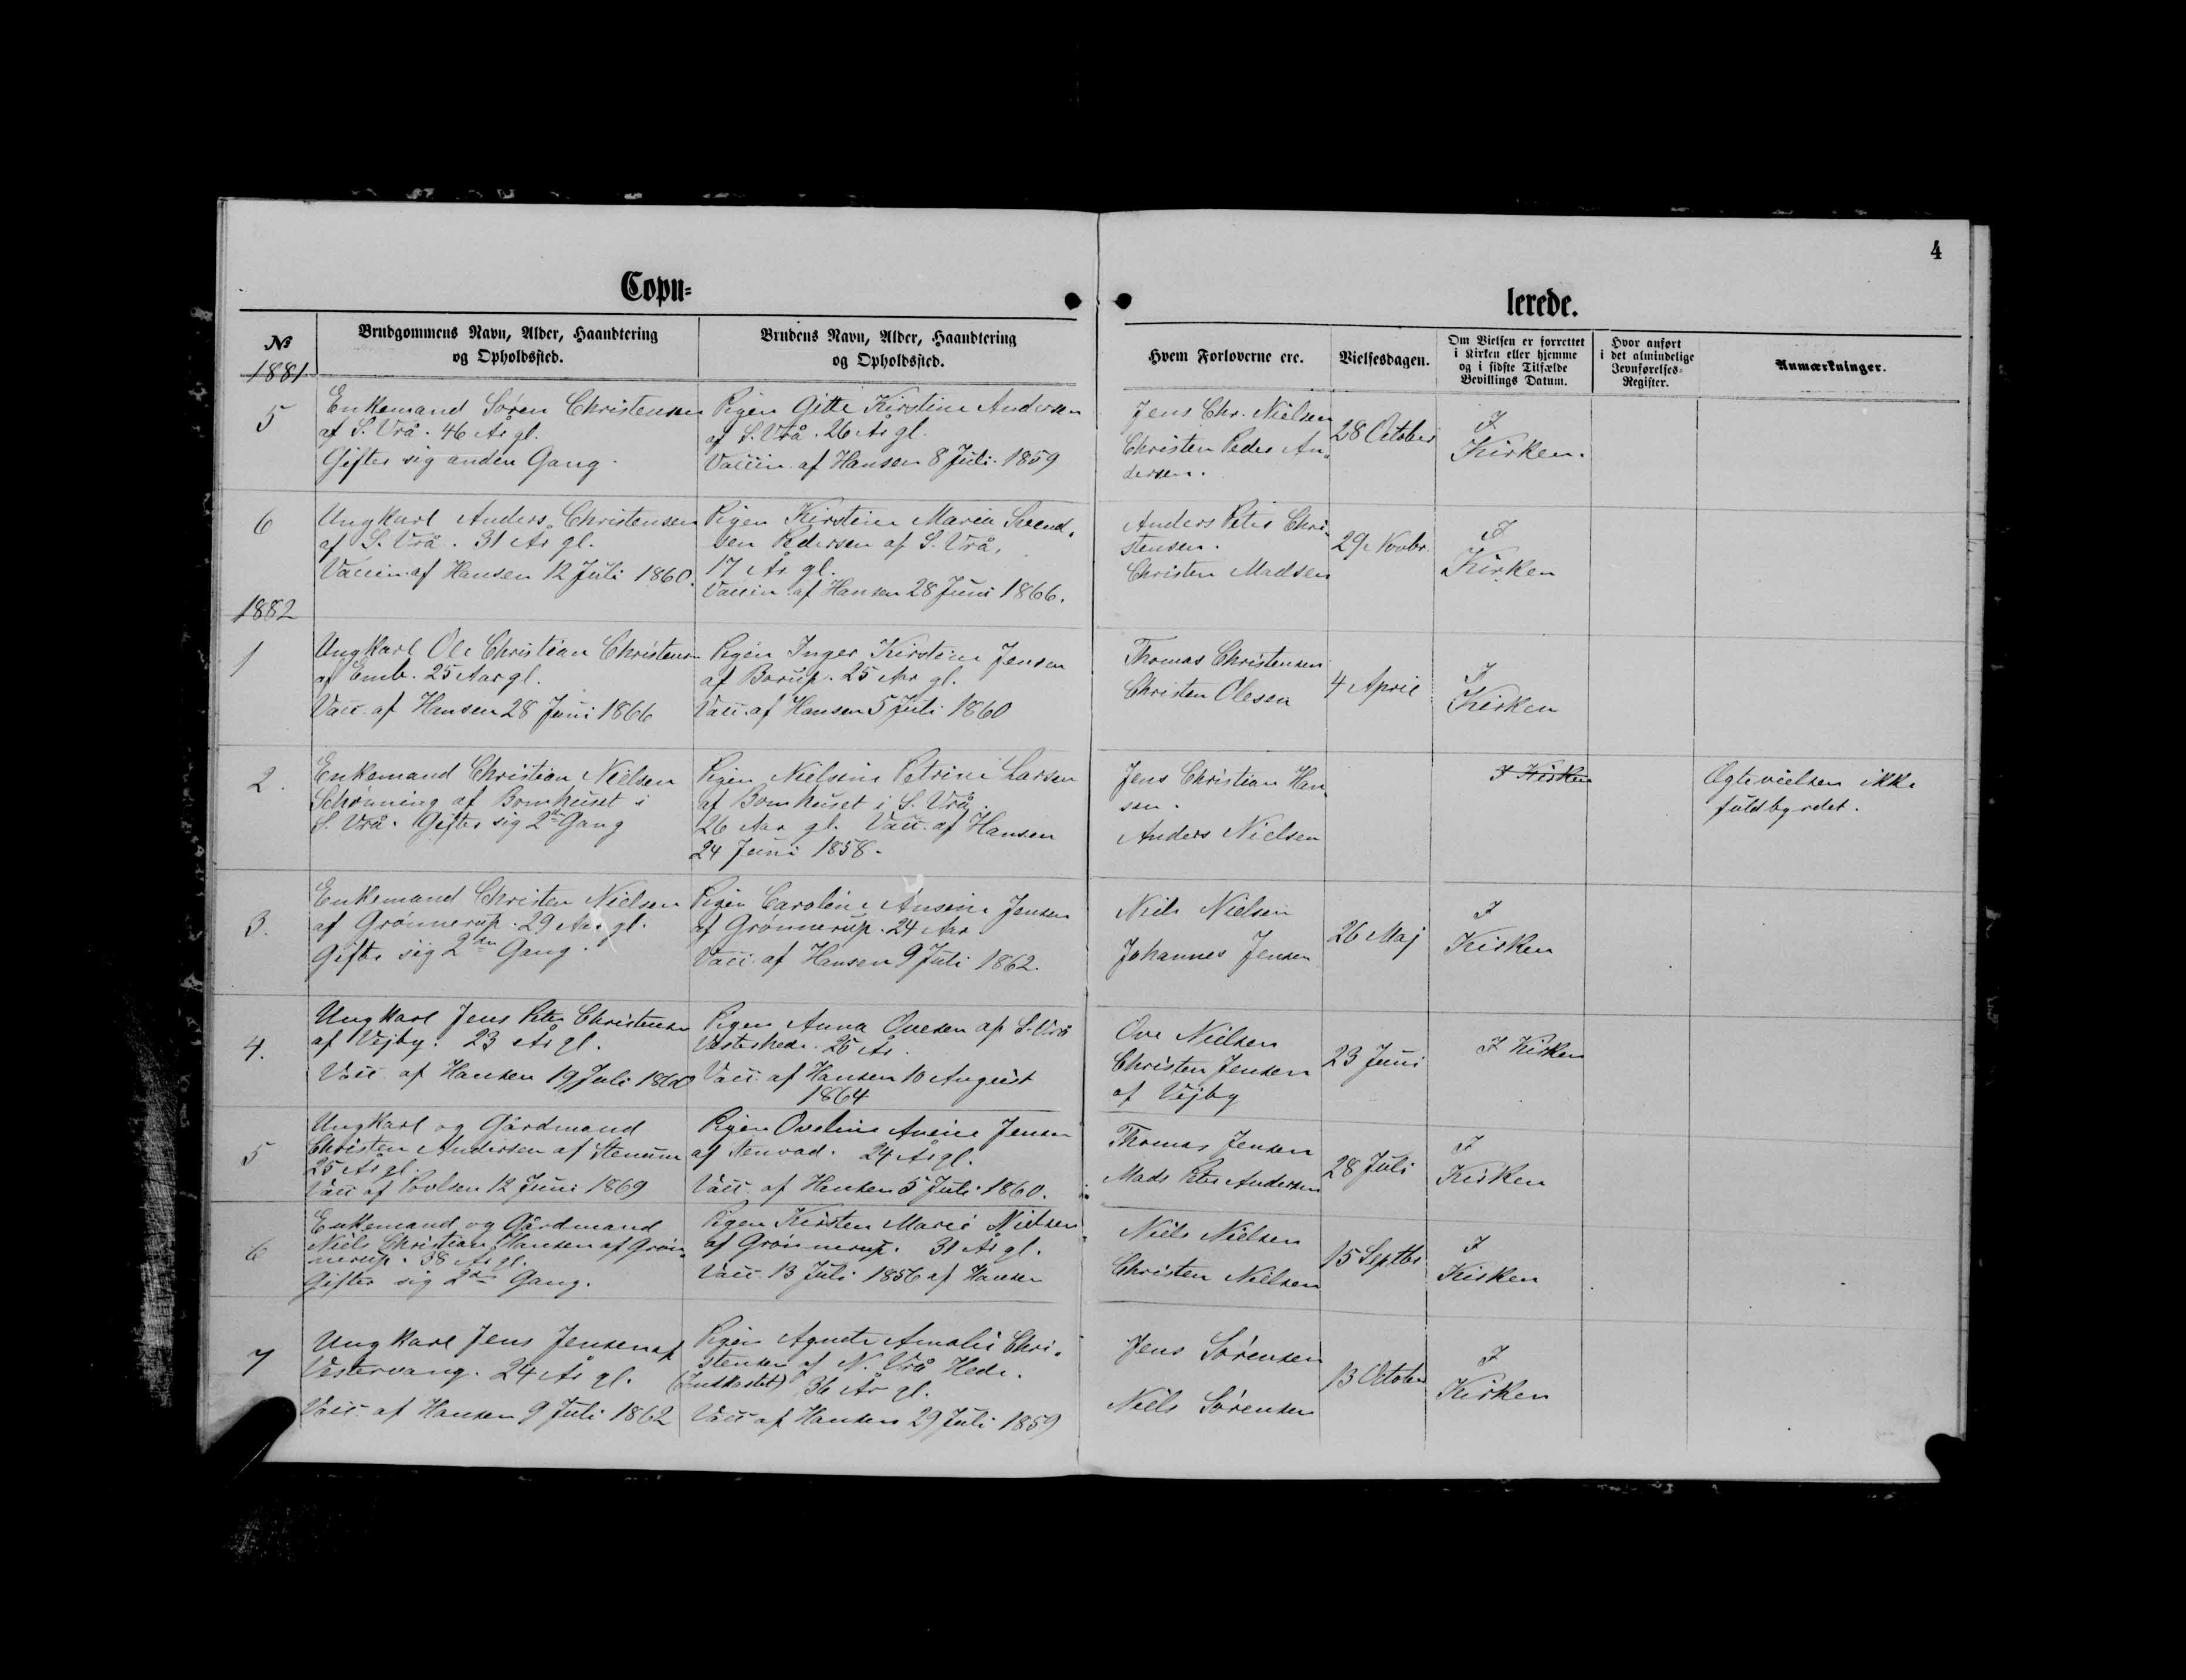 4
Copu=
lerede.
No
1881
Brudgommens Navn, Alder, Haandtering
og Opholdssted.
Brudens Navn, Alder, Haandtering
og Opholdssted.
Hvem Forloverne ere.
Vielsesdagen.
Om Vielsen er forrettet
i Kirken eller hjemme
og i sidste Tilfælde
Bevillings Datum.
Hvor anført
i det almindelige
Jevnførelses-
Register.
Anmærkninger.
5
Enkemand Søren Christensen
af S. Vrå. 46 År gl.
Gifter sig anden Gang.
Pigen Gitte Kirstine Andersen
af S. Vrå. 26 År gl.
Vaccin. af Hansen 8 Juli 1859
Jens Chr. Nielsen
Christen Peder An-
dersen.
28 October
I
Kirken.
6
Ungkarl Anders Christensen
af S. Vrå. 31 År gl.
Vaccin. af Hansen 12 Juli 1860.
Pigen Kirstine Maria Svend-
sen Pedersen af S. Vrå.
17 År gl.
Vaccin. af Hansen 28 Juni 1866.
Anders Peter Chri-
stensen.
Christen Madsen
29 Novbr.
I
Kirken
1882
1
Ungkarl Ole Christian Christensen
af Emb. 25 Aar gl.
Vacc. af Hansen 28 Juni 1866
Pigen Inger Kirstine Jensen
af Borup. 25 Aar gl.
Vacc. af Hansen 5 Juli 1860
Thomas Christensen
Christen Olesen
4 April
I
Kirken
2.
Enkemand Christian Nielsen
Schønning af Bomhuset i
S. Vrå. Gifter sig 2den Gang
Pigen Nielsine Petrine Larsen
af Bomhuset i S. Vrå.
26 Aar gl. Vacc. af Hansen
24 Juni 1858.
Jens Christian Han-
sen.
Anders Nielsen
I Kirken
Ægtevielsen ikke
fuldbyrdet.
3.
Enkemand Christen Nielsen
af Grønnerup. 29 Aar gl.
Gifter sig 2den Gang.
Pigen Caroline Ansine Jensen
af Grønnerup. 24 Aar
Vacc. af Hansen 9 Juli 1862.
Niels Nielsen
Johannes Jensen
26 Maj
I
Kirken
4.
Ungkarl Jens Peter Christensen
af Vejby. 23 År gl.
Vacc. af Hansen 19 Juli 1860
Pigen Anna Ovesen af S. Vrå
Vesterhede. 25 År.
Vacc. af Hansen 10 August
1864
Ove Nielsen
Christen Jensen
af Vejby
23 Juni
I Kirken
5
Ungkarl og Gårdmand
Christen Andersen af Stenum
25 År gl.
Vacc. af Povlsen 12 Juni 1869
Pigen Oveline Jensen
af Stenvad. 24 År gl.
Vacc. af Hansen 5 Juli 1860.
Thomas Jensen
Mads Peter Andersen
28 Juli
I
Kirken
6
Enkemand og Gårdmand
Niels Christian Hansen af Grøn-
nerup. 38 År gl.
Gifter sig 2den Gang.
Pigen Kirsten Marie Nielsen
af Grønnerup. 31 År gl.
Vacc. 13 Juli 1856 af Hansen
Niels Nielsen
Christen Nielsen
15 Septbr
I
Kirken
7
Ungkarl Jens Jensen af
Vestervang. 24 År gl.
Vacc. af Hansen 9 Juli 1862
Pigen Agnete Amalie Chri-
stensen af N. Vrå Hede.
36 År gl.
Vacc. af Hansen 29 Juli 1859
Jens Sørensen
Niels Sørensen
13 October
I
Kirken